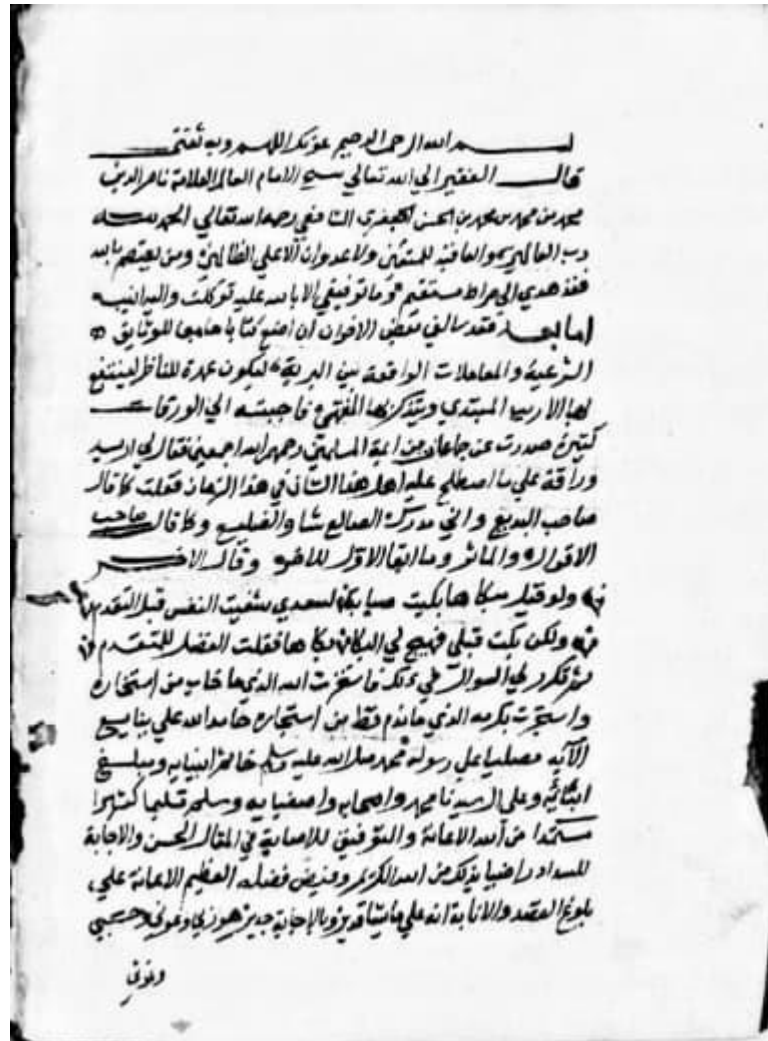 بسم الله الرحمن الرحيم عونك اللهم وبه ثقتي
قال الفقير الي الله تعالي شيخ الامام العالم العلامة ناصر الدين
محمد بن محمد بن محمد بن الحسن الجعفري الشافعي رحمه الله تعالي الحمد لله
رب العالمين والعاقبة للمتقين ولا عدوان الا علي الظالمين ومن يعتصم بالله
فقد هدي الي صراط مستقيم وما توفيقي الا بالله عليه توكلت واليه انيب
اما بعد فقد سالني بعض الاخوان ان اضع كتابا جامعا للوثايق
الشرعية والمعاملات الواقعة بين البرية ليكون عمدة للناظر لينتفع
بها الاريب المبتدي ويتذكر بها المنتهي فاجبته الي الورقات
كثيرة صدرت عن جماعات من ايمة المسلمين رحمهم الله اجمعين فقال لي اريد
وراقة علي ما اصطلح عليه اهل هذا الشان في هذا الزمان فقلت كما قال
صاحب البديع واني مدركة الضالع شاو الضليع وكما قال صاحب
الاقوال والماثر وما ابقا الاول للاخر وقال الاخر
ولو قبل مبكاها بكيت صبابة لسعدي شفيت النفس قبل التقدم
ولكن بكت قبلي فهيج لي البكا بكاها فقلت الفضل للمتقدم
ثم تكرر لي السوال في ذلك فاستخرت الله الذي ما خاب من استخاره
واستجرت بكرمه الذي ما ندم قط من استجاره حامدا لله علي ينابيع
الآيه مصليا علي رسوله محمد صلى الله عليه وسلم خاتم انبيايه ومبلغ
انبائه وعلي ال سيدنا محمد واصحابه واصفيايه وسلم تسليما كثيرا
مستمدا من الله الاعانة والتوفيق للاصابة في المقال الحسن والاجابة
للسداد راضيا بذلك من الله الكريم وفيض فضله العظيم الاعانة علي
بلوغ القصد والانابة انه علي ما يشا قدير وبالاجابة جدير هو ربي وعوني وحسبي